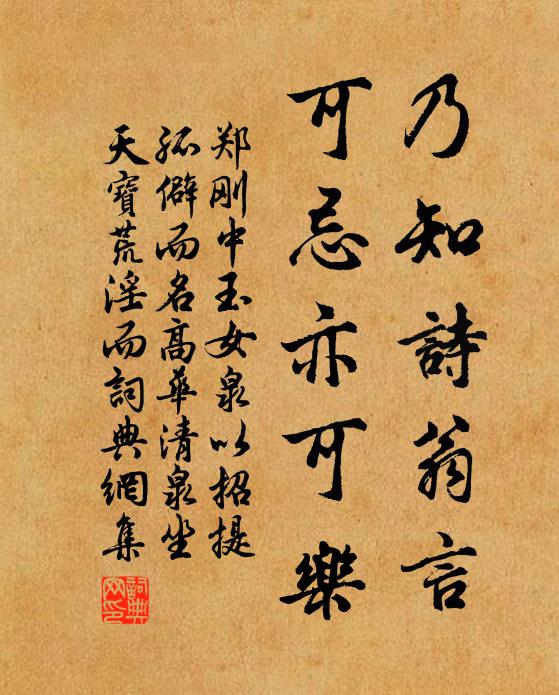 乃知詩翁言
可忌亦可樂
郑刚中玉女泉以招提
孤僻而名高華清泉坐
天寶荒淫而詞典網集
詞典網印